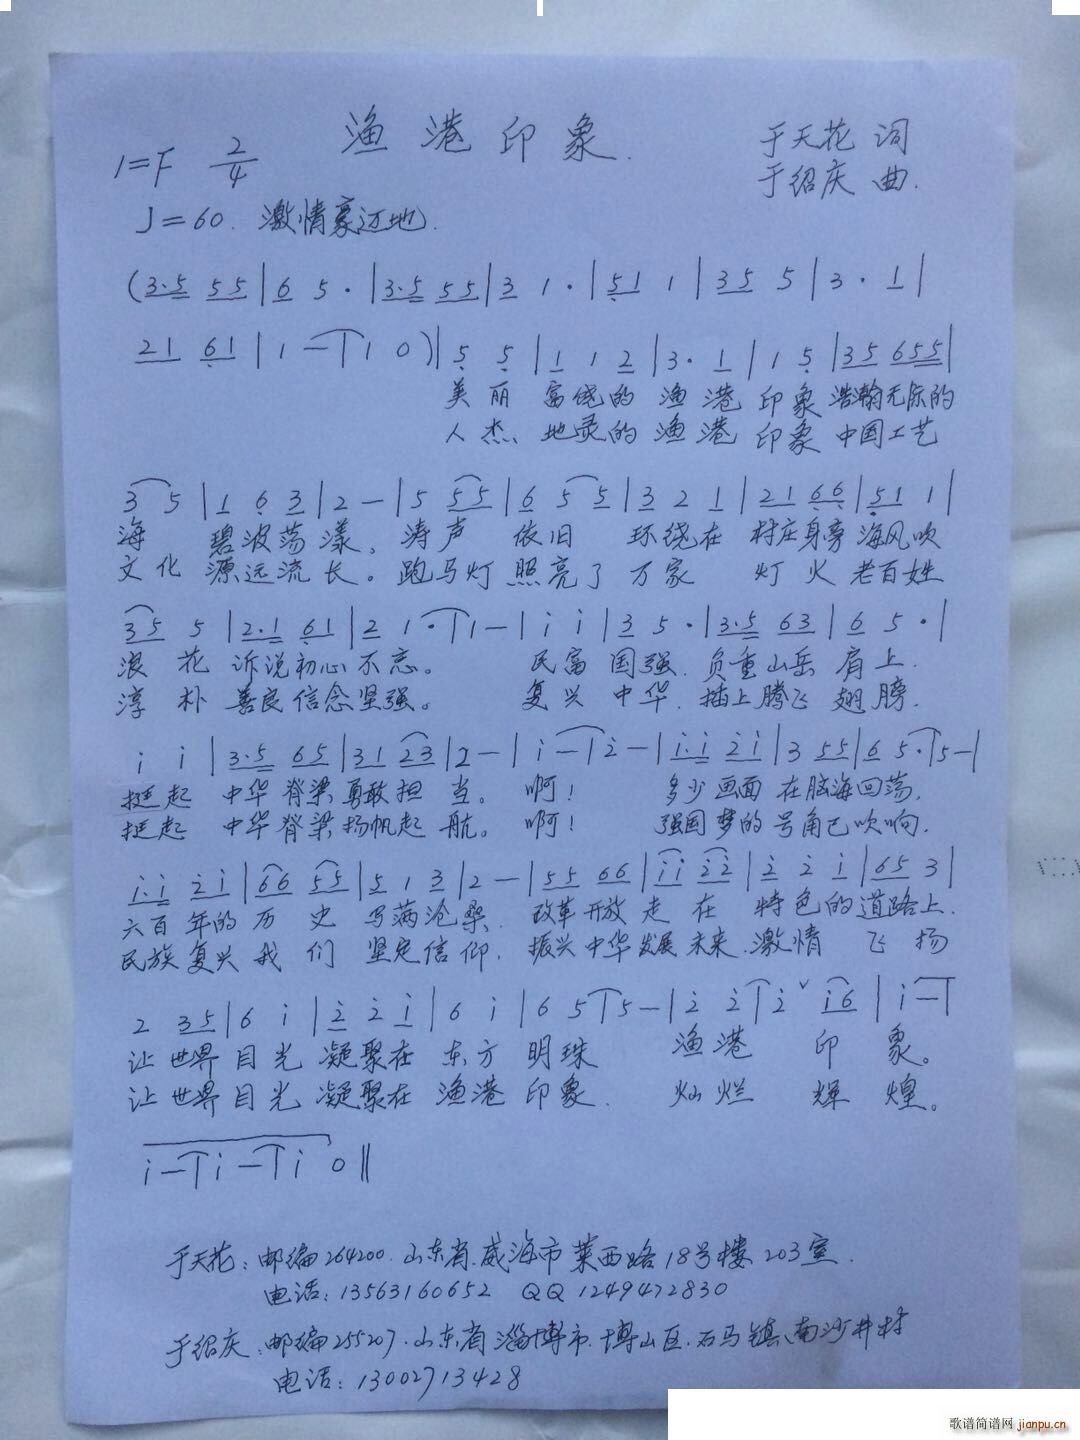 渔港印象.
1=F 2/4
于天花 词
于绍庆 曲.
J=60. 激情豪迈地.
(3·5 55|6 5·|3·5 55|3 1·|51 1|35 5|3· 1|
21 61|1 —|1 0)|5 5|1 1 2|3· 1|1 5|35 655|
美丽 富饶的 渔港 印象 浩瀚无际的
人杰 地灵的 渔港 印象 中国工艺
3 5|1 6 3|2 —|5 55|6 5 5|3 2 1|21 66|51 1|
海 碧波荡漾。涛声 依旧 环绕在 村庄身旁 海风吹
文化 源远流长。跑马灯 照亮了 万家 灯火 老百姓
35 5|2·1 61|2 1·|1—|i i|3 5·|3·5 63|6 5·|
浪花 诉说初心不忘。 民富 国强. 负重山岳 肩上.
淳朴 善良信念坚强。 复兴 中华. 插上腾飞 翅膀.
i i|3·5 65|31 23|2—|i—|2—|i·i 2i|3 55|6 5·|5—|
挺起 中华脊梁勇敢担当。 啊! 多少画面 在脑海回荡.
挺起 中华脊梁扬帆起航。 啊! 强国梦的 号角已吹响.
i·i 2i|66 55|5 1 3|2 —|55 66|ii 22|2 2 i|65 3|
六百年的 历史 写满沧桑. 改革开放 走在 特色的道路上.
民族复兴 我们 坚定信仰. 振兴中华 发展未来.激情 飞扬
2 35|6 i|2 2 i|6 i|6 5|5—|2 2|2 ˇ i6|i—|
让世界 目光 凝聚在 东方 明珠 渔港 印 象。
让世界 目光 凝聚在 渔港 印象. 灿烂 辉 煌。
i—|i—|i 0‖
于天花: 邮编264200. 山东省.威海市莱西路18号楼203室.
电话: 13563160652 QQ 1249472830
于绍庆.邮编255207.山东省淄博市.博山区.石马镇、南沙井村
电话: 13002713428
歌谱简谱网 jianpu.cn